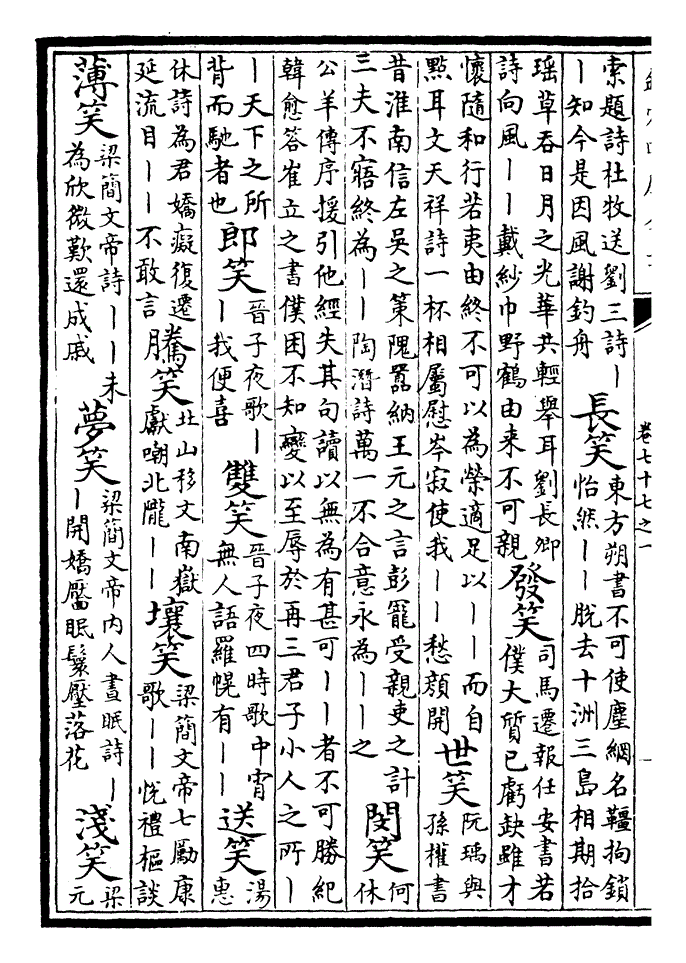 卷七十七之一
索題詩杜牧送劉三詩｜
｜知今是因風謝釣舟
長笑
東方朔書不可使塵網名韁拘鎖
怡然｜｜脫去十洲三島相期拾
瑶草吞日月之光華共輕舉耳劉長卿
詩向風｜｜戴紗巾野鶴由来不可親
發笑
司馬遷報任安書若
僕大質已虧缺雖才
懷隨和行若夷由終不可以為榮適足以｜｜而自
點耳文天祥詩一杯相屬慰岑寂使我｜｜愁顔開
世笑
阮瑀與
孫權書
昔淮南信左吳之策隗囂納王元之言彭寵受親吏之計
三夫不寤終為｜｜陶潛詩萬一不合意永為｜｜之
閔笑
何
休
公羊傳序援引他經失其句讀以無為有甚可｜｜者不可勝紀
韓愈答崔立之書僕困不知變以至辱於再三君子小人之所｜
｜天下之所
背而馳者也
郎笑
晉子夜歌｜
｜我便喜
雙笑
晉子夜四時歌中宵
無人語羅幌有｜｜
送笑
湯
惠
休詩為君嬌癡復遷
延流目｜｜不敢言
騰笑
北山移文南嶽
獻嘲北隴｜｜
壤笑
梁簡文帝七勵康
歌｜｜恱禮樞談
薄笑
梁簡文帝詩｜｜未
為欣微歎還成戚
夢笑
梁簡文帝內人晝眠詩｜
｜開嬌靨眠鬟壓落花
淺笑
梁
元